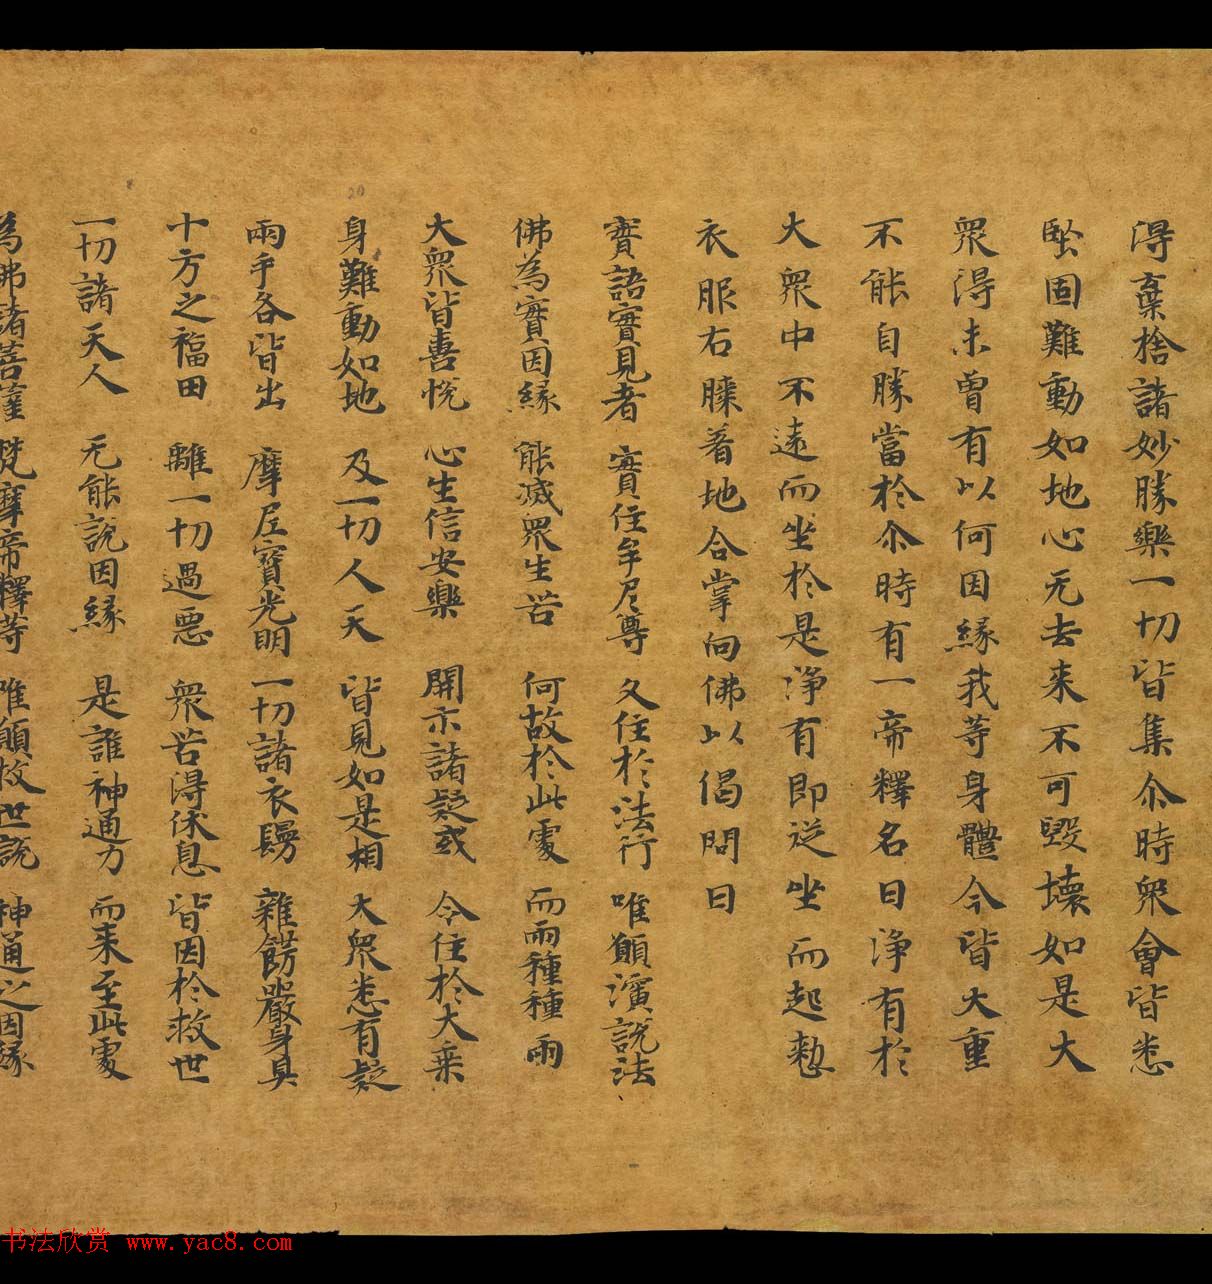 得棄捨諸妙勝樂一切皆集尒時眾會皆悉
堅固難動如地心无去来不可毀壞如是大
眾得未曾有以何因緣我等身體今皆大重
不能自勝當於尒時有一帝釋名曰淨有於
大眾中不遠而坐於是淨有即從坐而起整
衣服右膝著地合掌向佛以偈問曰
實語實見者 實住牟尼尊 久住於法行 唯願演說法
佛為實因緣 能滅眾生苦 何故於此處 而雨種種雨
大眾皆喜悅 心生信安樂 開示諸疑或 令住於大乗
身難動如地 及一切人天 皆見如是相 大眾悉有疑
兩手各皆出 摩尼寶光明 一切諸衣鬘 雜餝嚴身具
十方之福田 離一切過惡 眾苦得休息 皆因於救世
一切諸天人 无能說因緣 是誰神通力 而来至此處
為佛諸菩薩 梵摩帝釋等 唯願救世說 神通之因緣
书法欣赏 www.yac8.com